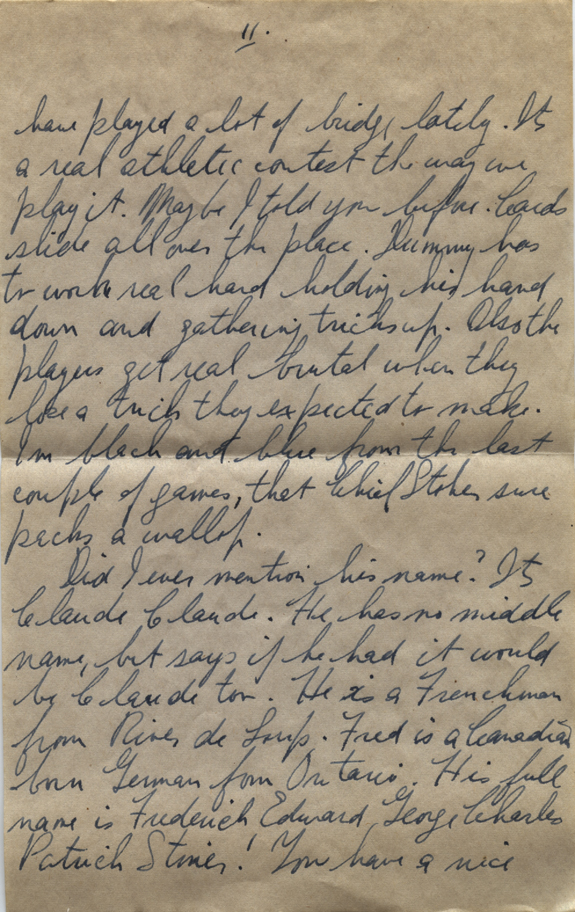 11.
have played a lot of bridge lately. Its
a real athletic contest the way we
play it. Maybe I told you before. Cards
slide all over the place. Dummy has
to work real hard holding his hand
down and gathering tricks up. Also the
players get real brutal when they
lose a trick they expected to make.
Im black and blue from the last
couple of games, that Chief Stoker sure
packs a wallop.
Did I ever mention his name? Its
Claude Claude. He has no middle
name, but says if he had it would
be Claude too. He is a Frenchman
from River de Loup. Fred is a Canadian
born German from Ontario. His full
name is Frederich Edward George Charles
Patrick! You have a nice